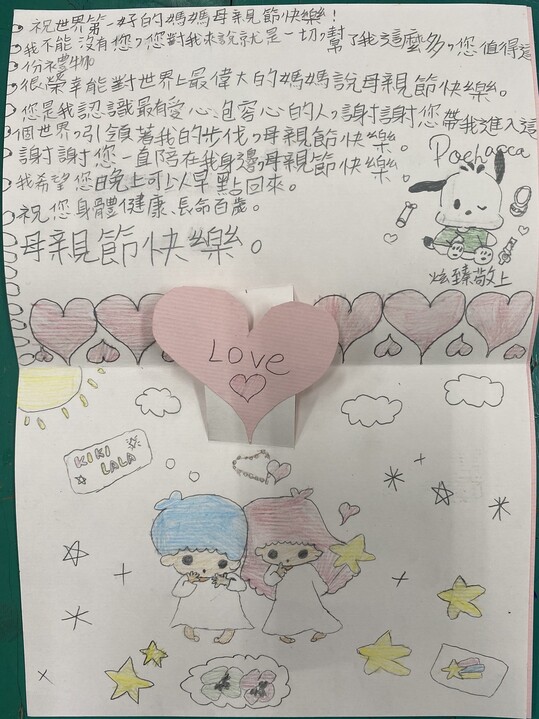 祝世界第一好的媽媽母親節快樂！
我不能沒有您，您對我來說就是一切，幫了我這麼多，您值得這
份禮物
很榮幸能對世界上最偉大的媽媽說母親節快樂。
您是我認識最有愛心、包容心的人，謝謝您帶我進入這
個世界，引領著我的步伐，母親節快樂。
謝謝您一直陪在我身邊，母親節快樂
我希望您晚上可以早點回來。
祝您身體健康、長命百歲。
母親節快樂。
Pochacca
炫臻敬上
Love
KIKI
LALA